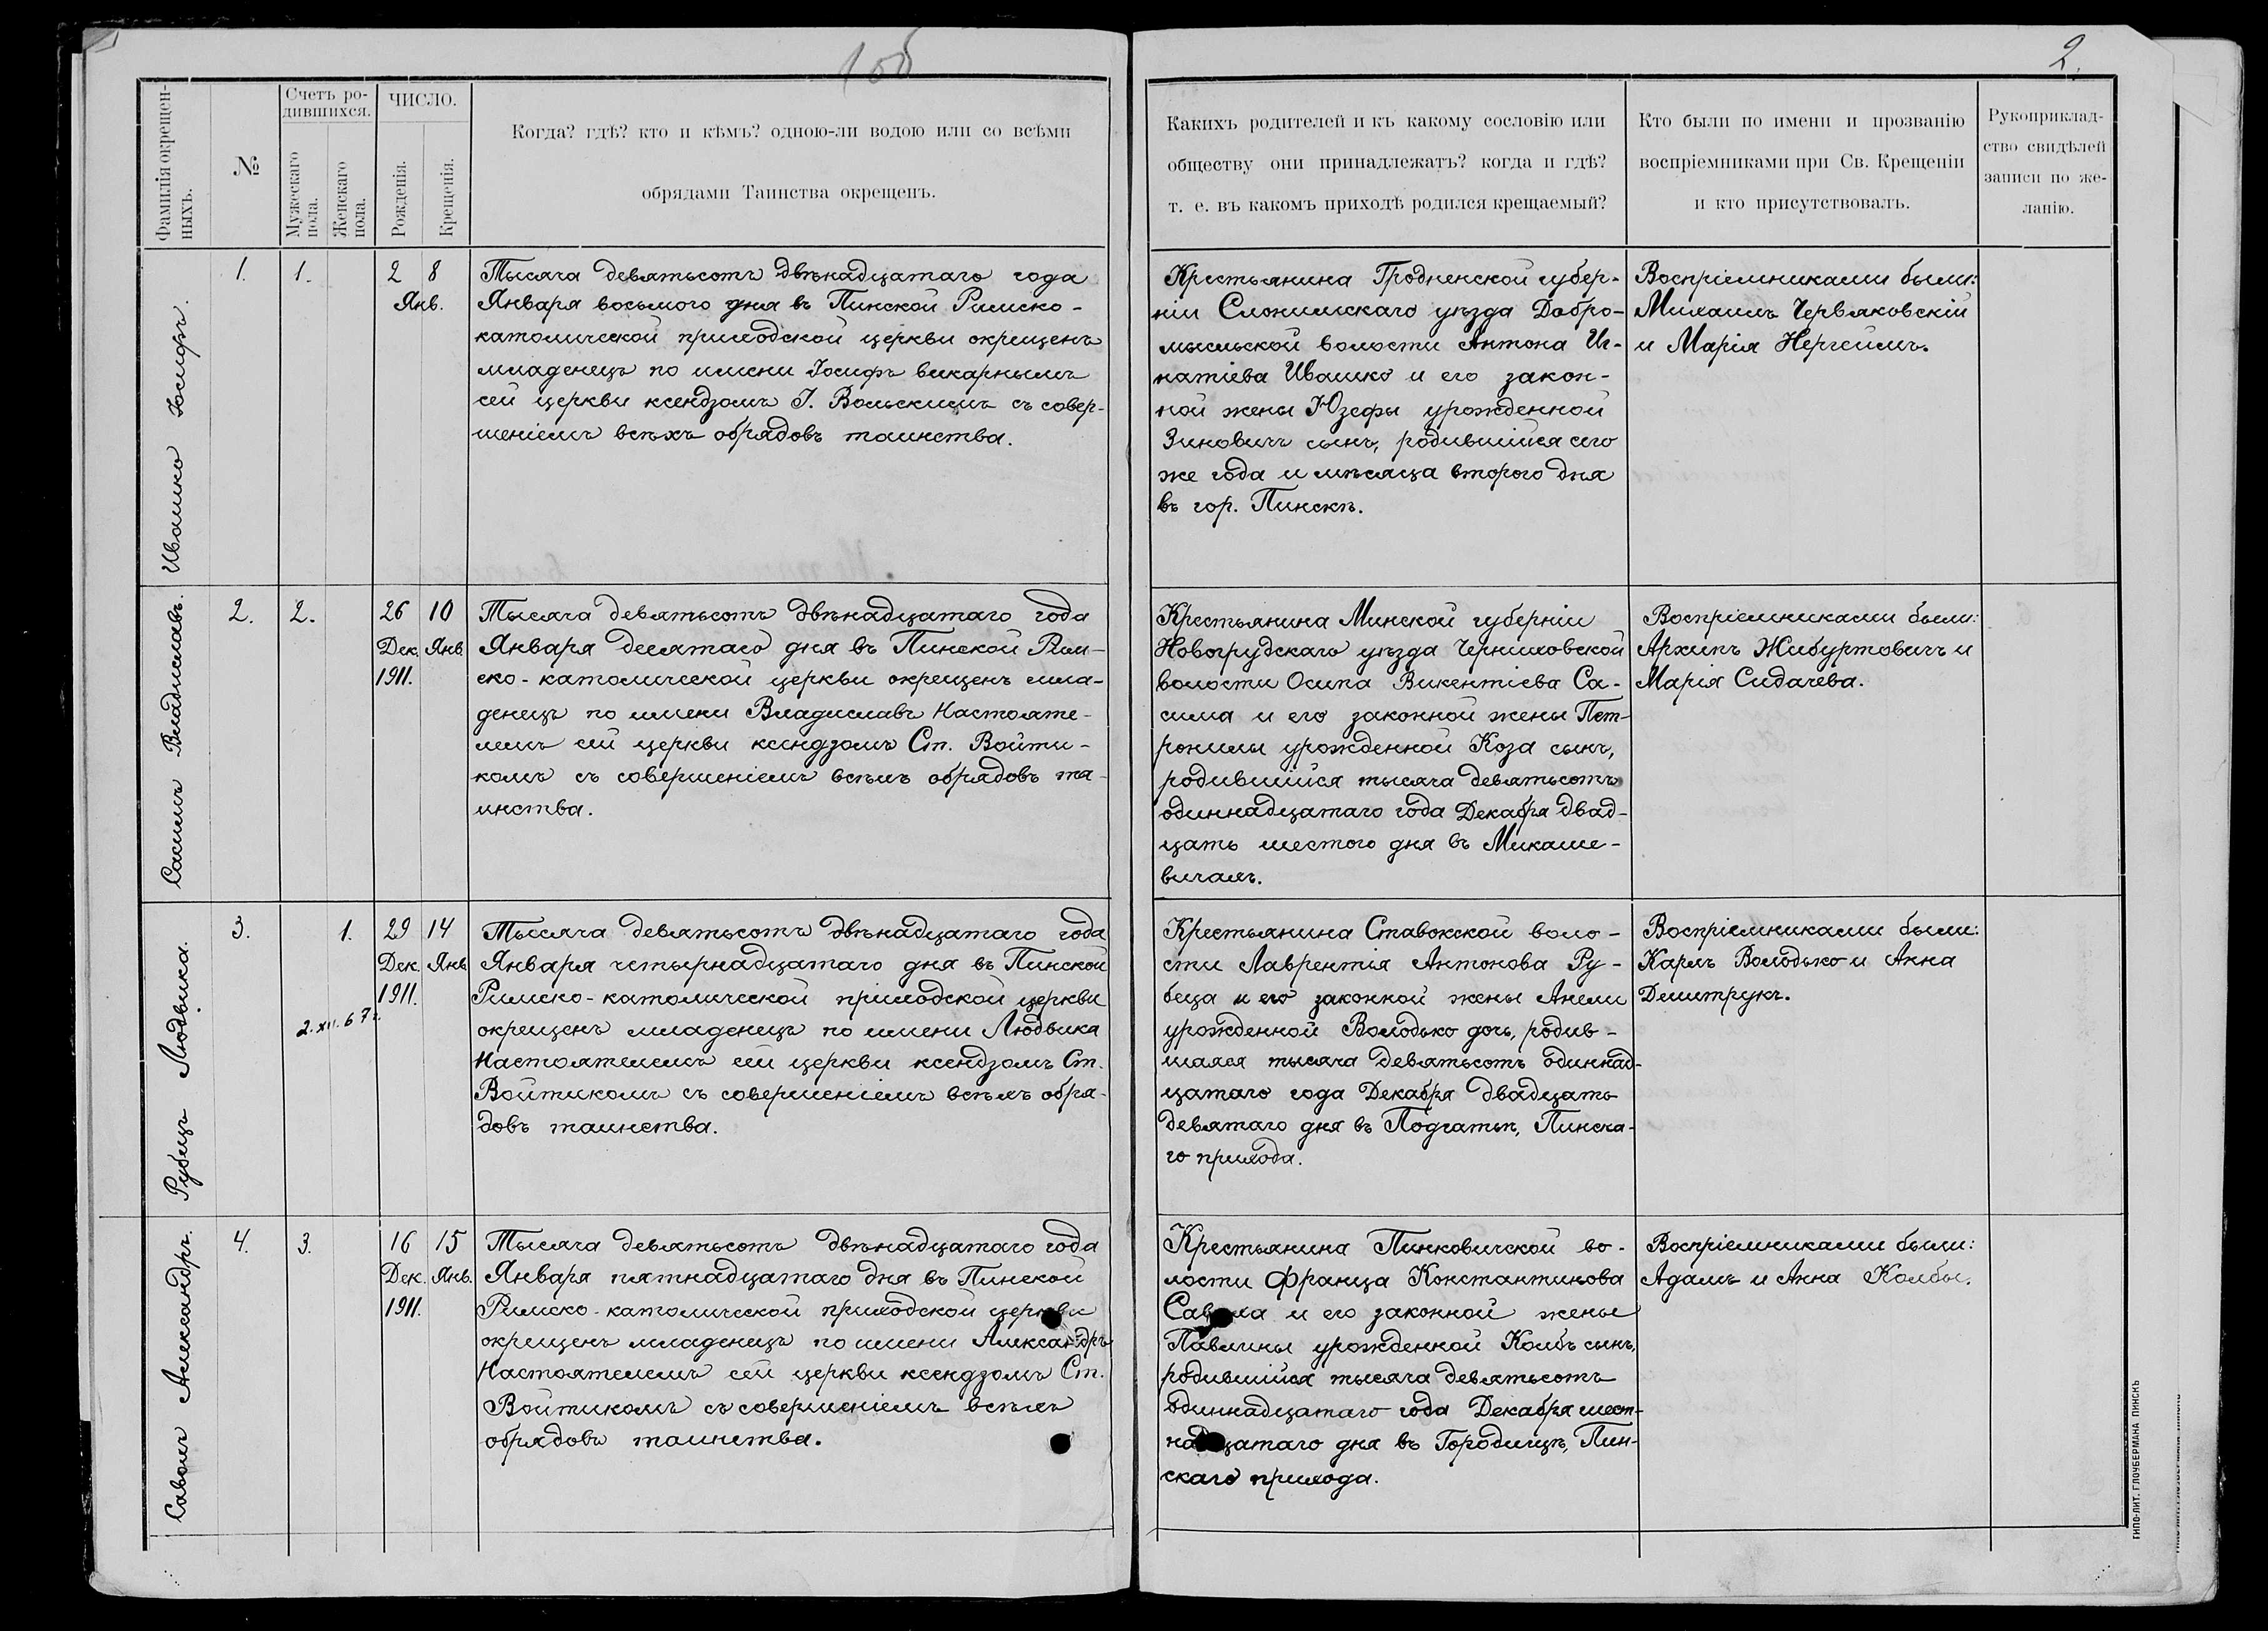 100
2.
Фамилія окрещен-
ныхъ.
№
Счетъ ро-
дившихся.
Мужескаго
пола.
Женскаго
пола.
ЧИСЛО.
Рожденія.
Крещенія.
Когда? гдѣ? кто и кѣмъ? одною-ли водою или со всѣми
обрядами Таинства окрещенъ.
Какихъ родителей и къ какому сословію или
обществу они принадлежатъ? когда и гдѣ?
т. е. въ какомъ приходѣ родился крещаемый?
Кто были по имени и прозванію
воспріемниками при Св. Крещеніи
и кто присутствовалъ.
Рукоприклад-
ство свидѣлей
записи по же-
ланію.
Ивашко Іосифъ.
1.
1.
2 8
Янв.
Тысяча девятьсотъ двѣнадцатаго года
Января восьмого дня въ Пинской Римско-
католической приходской церкви окрещенъ
младенецъ по имени Іосифъ викарнымъ
сей церкви ксендзомъ І. Вольскимъ съ совер-
шеніемъ всѣхъ обрядовъ таинства.
Крестьянина Гродненской губер-
ніи Слонимскаго уѣзда Добро-
мысльской волости Антона Иг-
натіева Ивашко и его закон-
ной жены Юзефы урожденной
Зиновичъ сынъ, родившійся сего
же года и мѣсяца второго дня
въ гор. Пинскѣ.
Воспріемниками были:
Михаилъ Червяковскій
и Марія Нергеймъ.
Сасимъ Владиславъ.
2.
2.
26 10
Дек. Янв.
1911.
Тысяча девятьсотъ двѣнадцатаго года
Января десятаго дня въ Пинской Рим-
ско-католической церкви окрещенъ мла-
денецъ по имени Владиславъ Настояте-
лемъ сей церкви ксендзомъ Ст. Войти-
комъ съ совершеніемъ всѣхъ обрядовъ та-
инства.
Крестьянина Минской губерніи
Новогрудскаго уѣзда Черниховской
волости Осипа Викентіева Са-
сима и его законной жены Пет-
ронили урожденной Коза сынъ,
родившійся тысяча девятьсотъ
одиннадцатаго года Декабря двад-
цать шестого дня въ Микаше-
вичахъ.
Воспріемниками были:
Архипъ Жибуртовичъ и
Марія Сидачева.
Рубецъ Людвика.
3.
1.
2.XII.67г.
29 14
Дек. Янв
1911.
Тысяча девятьсотъ двѣнадцатаго года
Января четырнадцатаго дня въ Пинской
Римско-католической приходской церкви
окрещенъ младенецъ по имени Людвика
Настоятелемъ сей церкви ксендзомъ Ст.
Войтикомъ съ совершеніемъ всѣхъ обря-
довъ таинства.
Крестьянина Ставокской воло-
сти Лаврентія Антонова Ру-
беца и его законной жены Анели
урожденной Володько дочь, родив-
шаяся тысяча девятьсотъ одиннад-
цатаго года Декабря двадцать
девятаго дня въ Подгатьѣ, Пинска-
го прихода.
Воспріемниками были:
Карлъ Володько и Анна
Демитрукъ.
Саволъ Александръ.
4.
3.
16 15
Дек. Янв.
1911.
Тысяча девятьсотъ двѣнадцатаго года
Января пятнадцатаго дня въ Пинской
Римско-католической приходской церкви
окрещенъ младенецъ по имени Александръ
Настоятелемъ сей церкви ксендзомъ Ст.
Войтикомъ съ совершеніемъ всѣхъ
обрядовъ таинства.
Крестьянина Пинковичской во-
лости Франца Константинова
Савола и его законной жены
Павлины урожденной Колбъ сынъ,
родившійся тысяча девятьсотъ
одиннадцатаго года Декабря шест-
надцатаго дня въ Городищѣ, Пин-
скаго прихода.
Воспріемниками были:
Адамъ и Анна Колбы.
ТИПО-ЛИТ. ГЛОУБЕРМАНА ПИНСКЪ